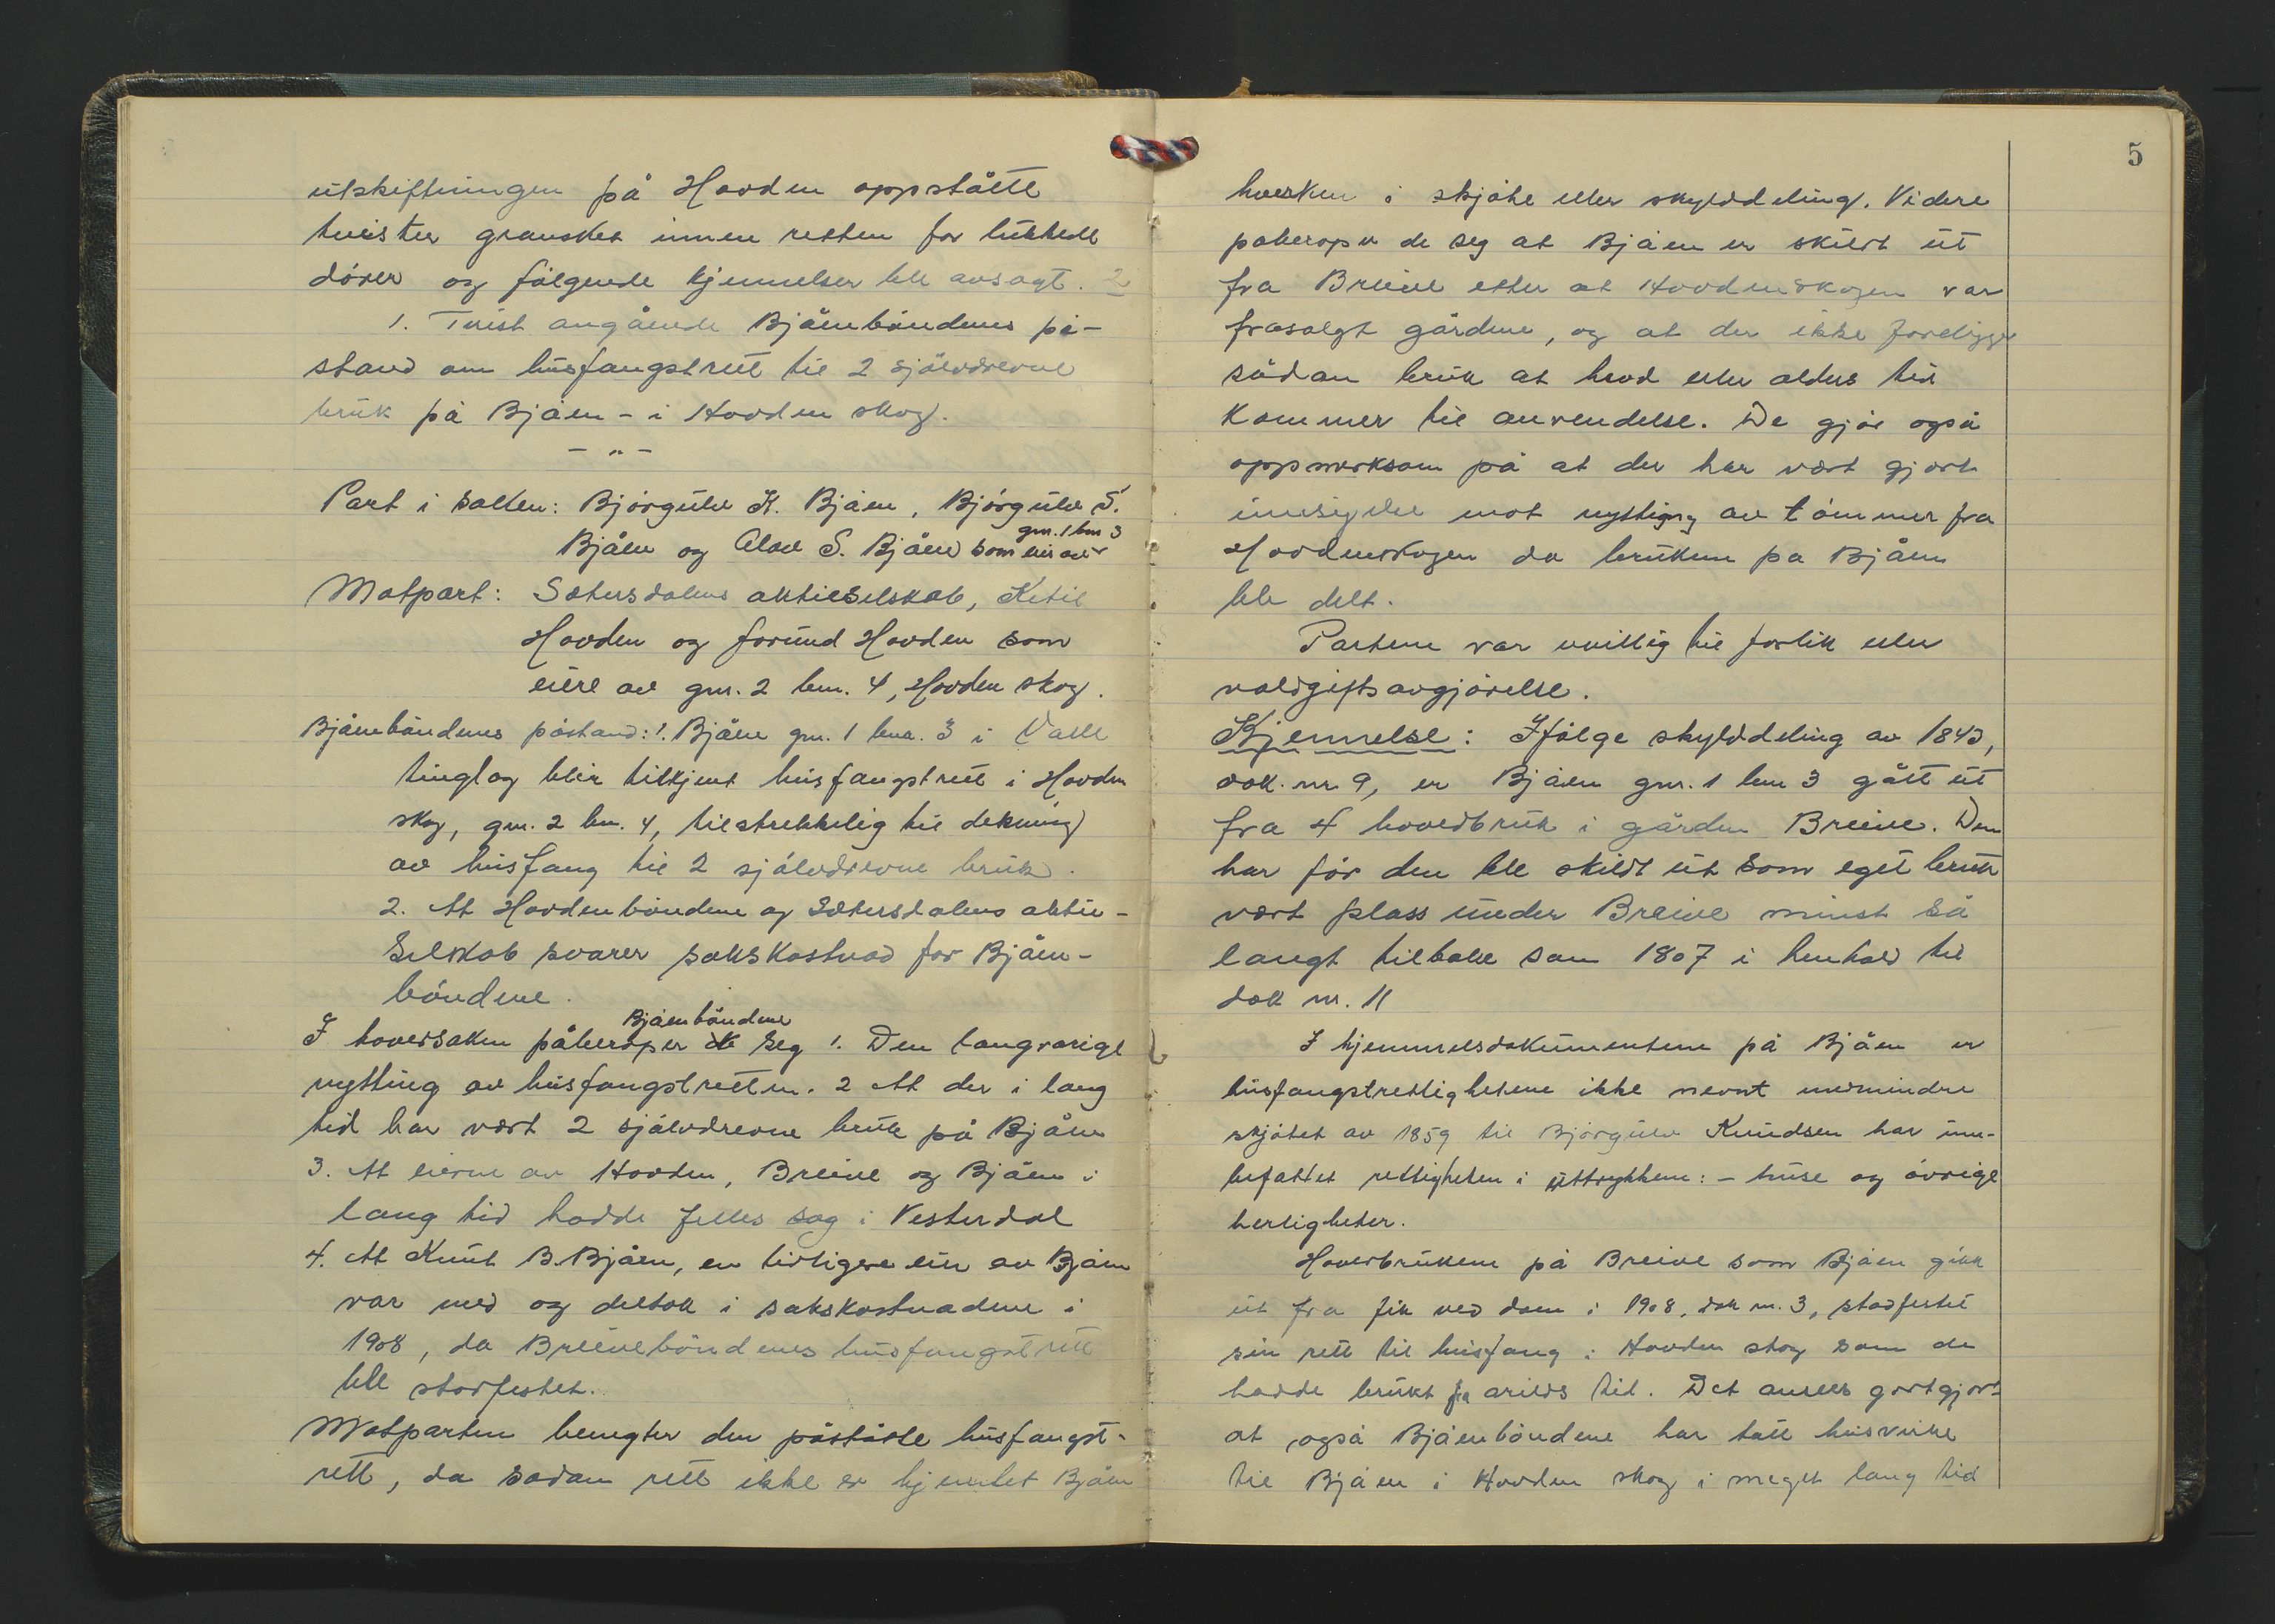 utskiftningen på Hovden oppståtte
tvister gransket innen retten for lukkede
dörer og fölgende kjennelser ble avsagt.
1. Tvist angående Bjåenböndenes på-
stand om husfangstrett til 2 sjölvdrevne
bruk på Bjåen - i Hovden skog.
- " -
Part i saken: Björgulv K. Bjåen, Björgulv S.
gnr. 1 bnr 3
Bjåen og Alov S. Bjåen som eier av
Motpart: Setersdalens aktieselskab, Ketil
Hovden og Jorund Hovden som
eiere av gnr. 2 bnr. 4, Hovden skog.
Bjåenböndenes påstand: 1. Bjåen gnr. 1 bnr. 3 i Valle
tinglag blir tilkjent husfangstrett i Hovden
skog, gnr. 2 bnr. 4, tilstrekkelig til dekning
av husfang til 2 sjölvdrevne bruk.
2. At Hovdenböndene og Setersdalens aktie-
selskab svarer sakskostnad for Bjåen-
böndene.
Bjåenböndene
I hovedsaken påberoper de seg 1. Den langvarige
nytting av husfangstretten. 2 At der i lang
tid har vært 2 sjölvdrevne bruk på Bjåen
3. At eierne av Hovden, Breive og Bjåen i
lang tid hadde felles sag i Vesterdal
4. At Knut B. Bjåen, en tidligere eier av Bjåen
var med og deltok i sakskostnadene i
1908, da Breiveböndenes husfangstrett
ble stadfestet.
Motparten benegter den påståtte husfangst-
rett, da sådan rett ikke er hjemlet Bjåen
5
hverken i skjöte eller skylddeling. Videre
påberoper de seg at Bjåen er skilt ut
fra Breive etter at Hovdenskogen var
frasolgt gårdene, og at der ikke foreligger
sådan bruk at hevd eller alders tid
kommer til anvendelse. De gjör også
oppmerksom på at der har vært gjort
innsigelse mot nytting av tömmer fra
Hovdenskogen da brukene på Bjåen
ble delt.
Partene var uvillig til forlik eller
voldgiftsavgjörelse.
Kjennelse: Ifölge skylddeling av 1843,
dok. nr. 9, er Bjåen gnr. 1 bnr 3 gått ut
fra 4 hovedbruk i gården Breive. Den
har för den ble skildt ut som eget bruk
vært plass under Breive minst så
langt tilbake som 1807 i henhold til
dok nr. 11
I hjemmelsdokumentene på Bjåen er
husfangstrettighetene ikke nevnt medmindre
skjötet av 1859 til Björgulv Knudsen har inn-
befattet rettigheten i uttrykkene: - huse og övrige
herligheter.
Hovedbrukene på Breive som Bjåen gikk
ut fra fik ved dom i 1908, dok nr. 3, stadfestet
sin rett til husfang i Hovden skog som de
hadde brukt fra arilds tid. Det ansees godtgjort
at også Bjåenböndene har tatt husvirke
til Bjåen i Hovden skog i meget lang tid